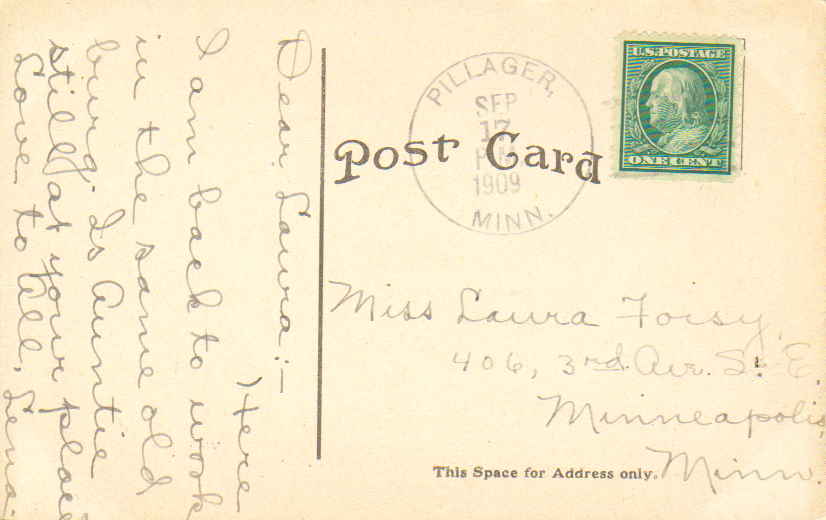 Dear Laura:-
Here
I am back to work
in the same old
burg. Is Auntie
still at your place
Love to All, Lena.
Post Card
PILLAGER,
SEP
17
1909
MINN.
U.S. POSTAGE
ONE CENT
Miss Laura Foisy,
406, 3rd. Ave. S. E.
Minneapolis
Minn.
This Space for Address only.